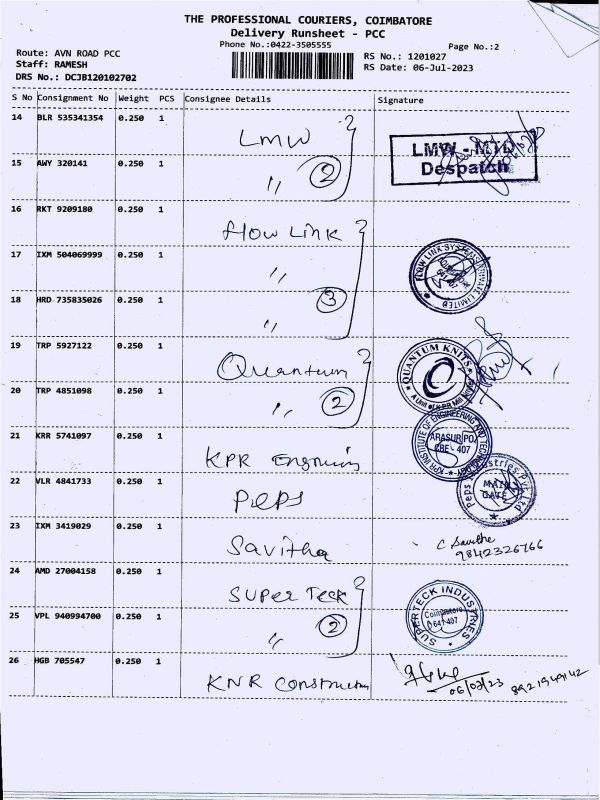 THE PROFESSIONAL COURIERS, COIMBATORE
Delivery Runsheet - PCC
Phone No.:0422-3505555
Page No.:2
Route: AVN ROAD PCC
RS No.: 1201027
Staff: RAMESH
RS Date: 06-Jul-2023
DRS No.: DCJB120102702
S No Consignment No Weight PCS Consignee Details Signature
14 BLR 535341354 0.250 1 LMW
LMW - MTD
Despatch
15 AWY 320141 0.250 1 ,, 2
16 RKT 9209180 0.250 1 Flow Link
17 IXM 504069999 0.250 1 ,,
FLOW LINK SYSTEMS PRIVATE LIMITED
18 HRD 735835026 0.250 1 ,, 3
19 TRP 5927122 0.250 1 Quantum
QUANTUM KNITS
20 TRP 4851098 0.250 1 ,, 2
21 KRR 5741097 0.250 1 KPR
KPR INSTITUTE OF ENGINEERING AND
ARASUR PO.
CBE - 407
22 VLR 4841733 0.250 1 Peps
Peps Industries Pvt Ltd
MAIN
GATE
23 IXM 3419029 0.250 1 Savitha
C Savithe
9842326766
24 AMD 27004158 0.250 1 Super Teck
SUPERTECK INDUSTRIES
Coimbatore
641 407
25 VPL 940994700 0.250 1 ,, 2
26 HGB 705547 0.250 1 KNR Construction